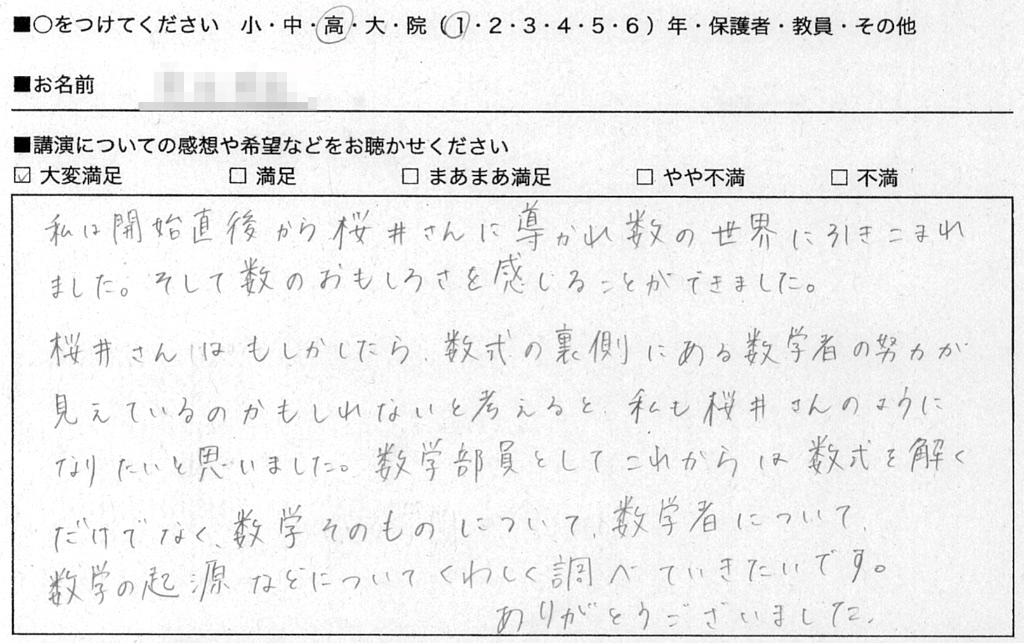 ■○をつけてください 小・中・高・大・院(1・2・3・4・5・6)年・保護者・教員・その他
■お名前
■講演についての感想や希望などをお聴かせください
☑ 大変満足 □ 満足 □ まあまあ満足 □ やや不満 □ 不満
私は開始直後から桜井さんに導かれ数の世界に引きこまれ
ました。そして数のおもしろさを感じることができました。
桜井さんはもしかしたら、数式の裏側にある数学者の努力が
見えているのかもしれないと考えると、私も桜井さんのように
なりたいと思いました。数学部員としてこれからは数式を解く
だけでなく、数学そのものについて、数学者について、
数学の起源などについてくわしく調べていきたいです。
ありがとうございました。